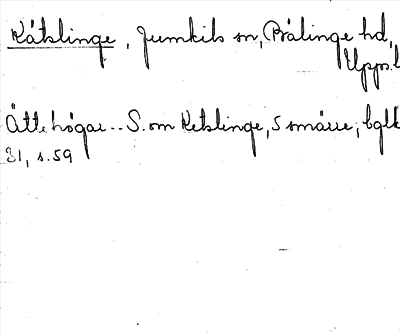 Kätslinge, Jumkils sn, Bälinge hd,
Upps. l
Ättehögar.. S. om Ketslinge, 5 smärre; bglk
81, s. 59